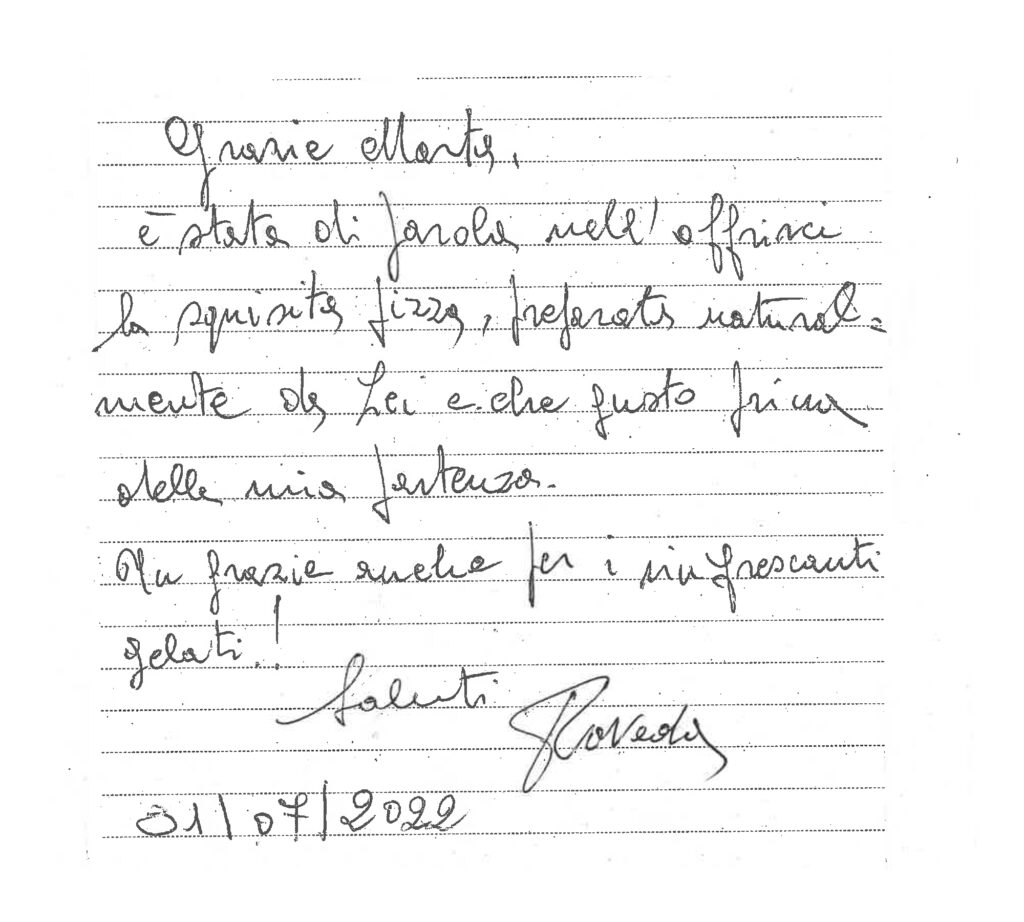 Grazie Marta,
è stata di parola nell'offrirci
la squisita pizza, preparata natural=
mente da Lei e che gusto prima
della mia partenza.
Un grazie anche per i rinfrescanti
gelati.!
Saluti Roveda
01/07/2022